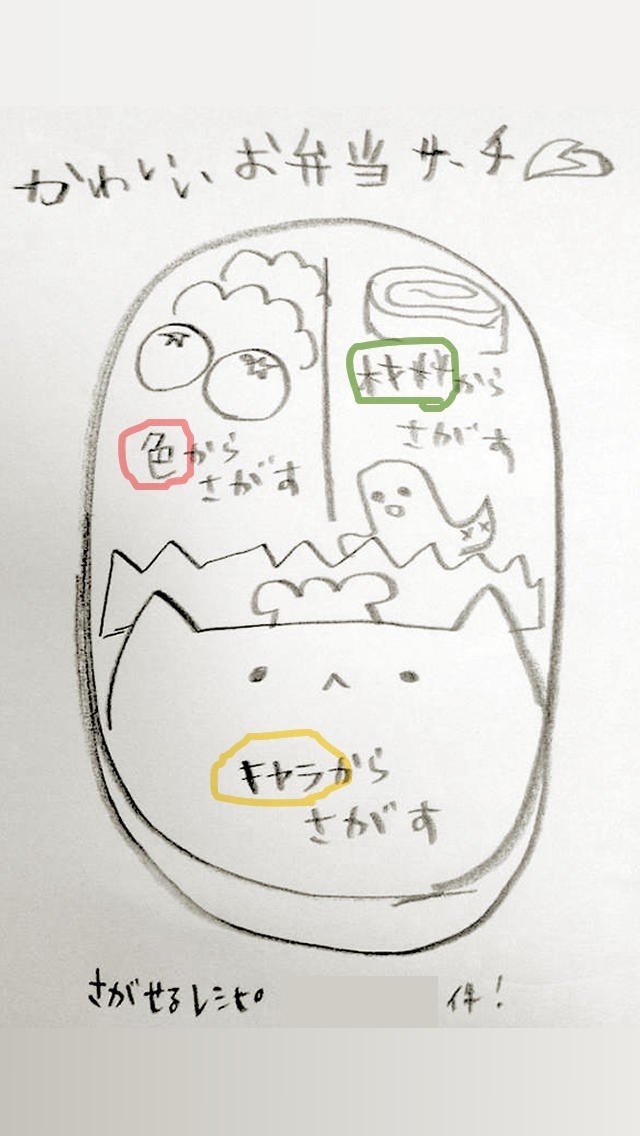 かわいいお弁当サーチ
色から
さがす
材料から
さがす
キャラから
さがす
さがせるレシピ 件!